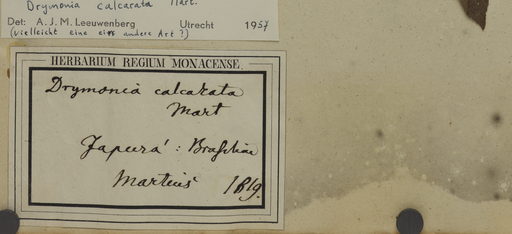 Drymonia calcarata Mart.
Det: A. J. M. Leeuwenberg Utrecht 1957
(vielleicht eine andere Art?)
HERBARIUM REGIUM MONACENSE.
Drymonia calcarata
Mart
Japurá : Brasiliae
Martius 1819.